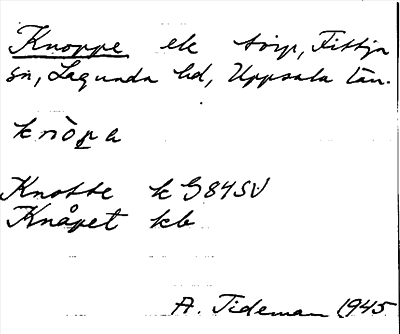 Knoppe ek torp, Fittja
sn, Lagunda hd, Uppsala län.
knòpa
Knotte k G84SV
Knåpet kb
A. Tideman 1945